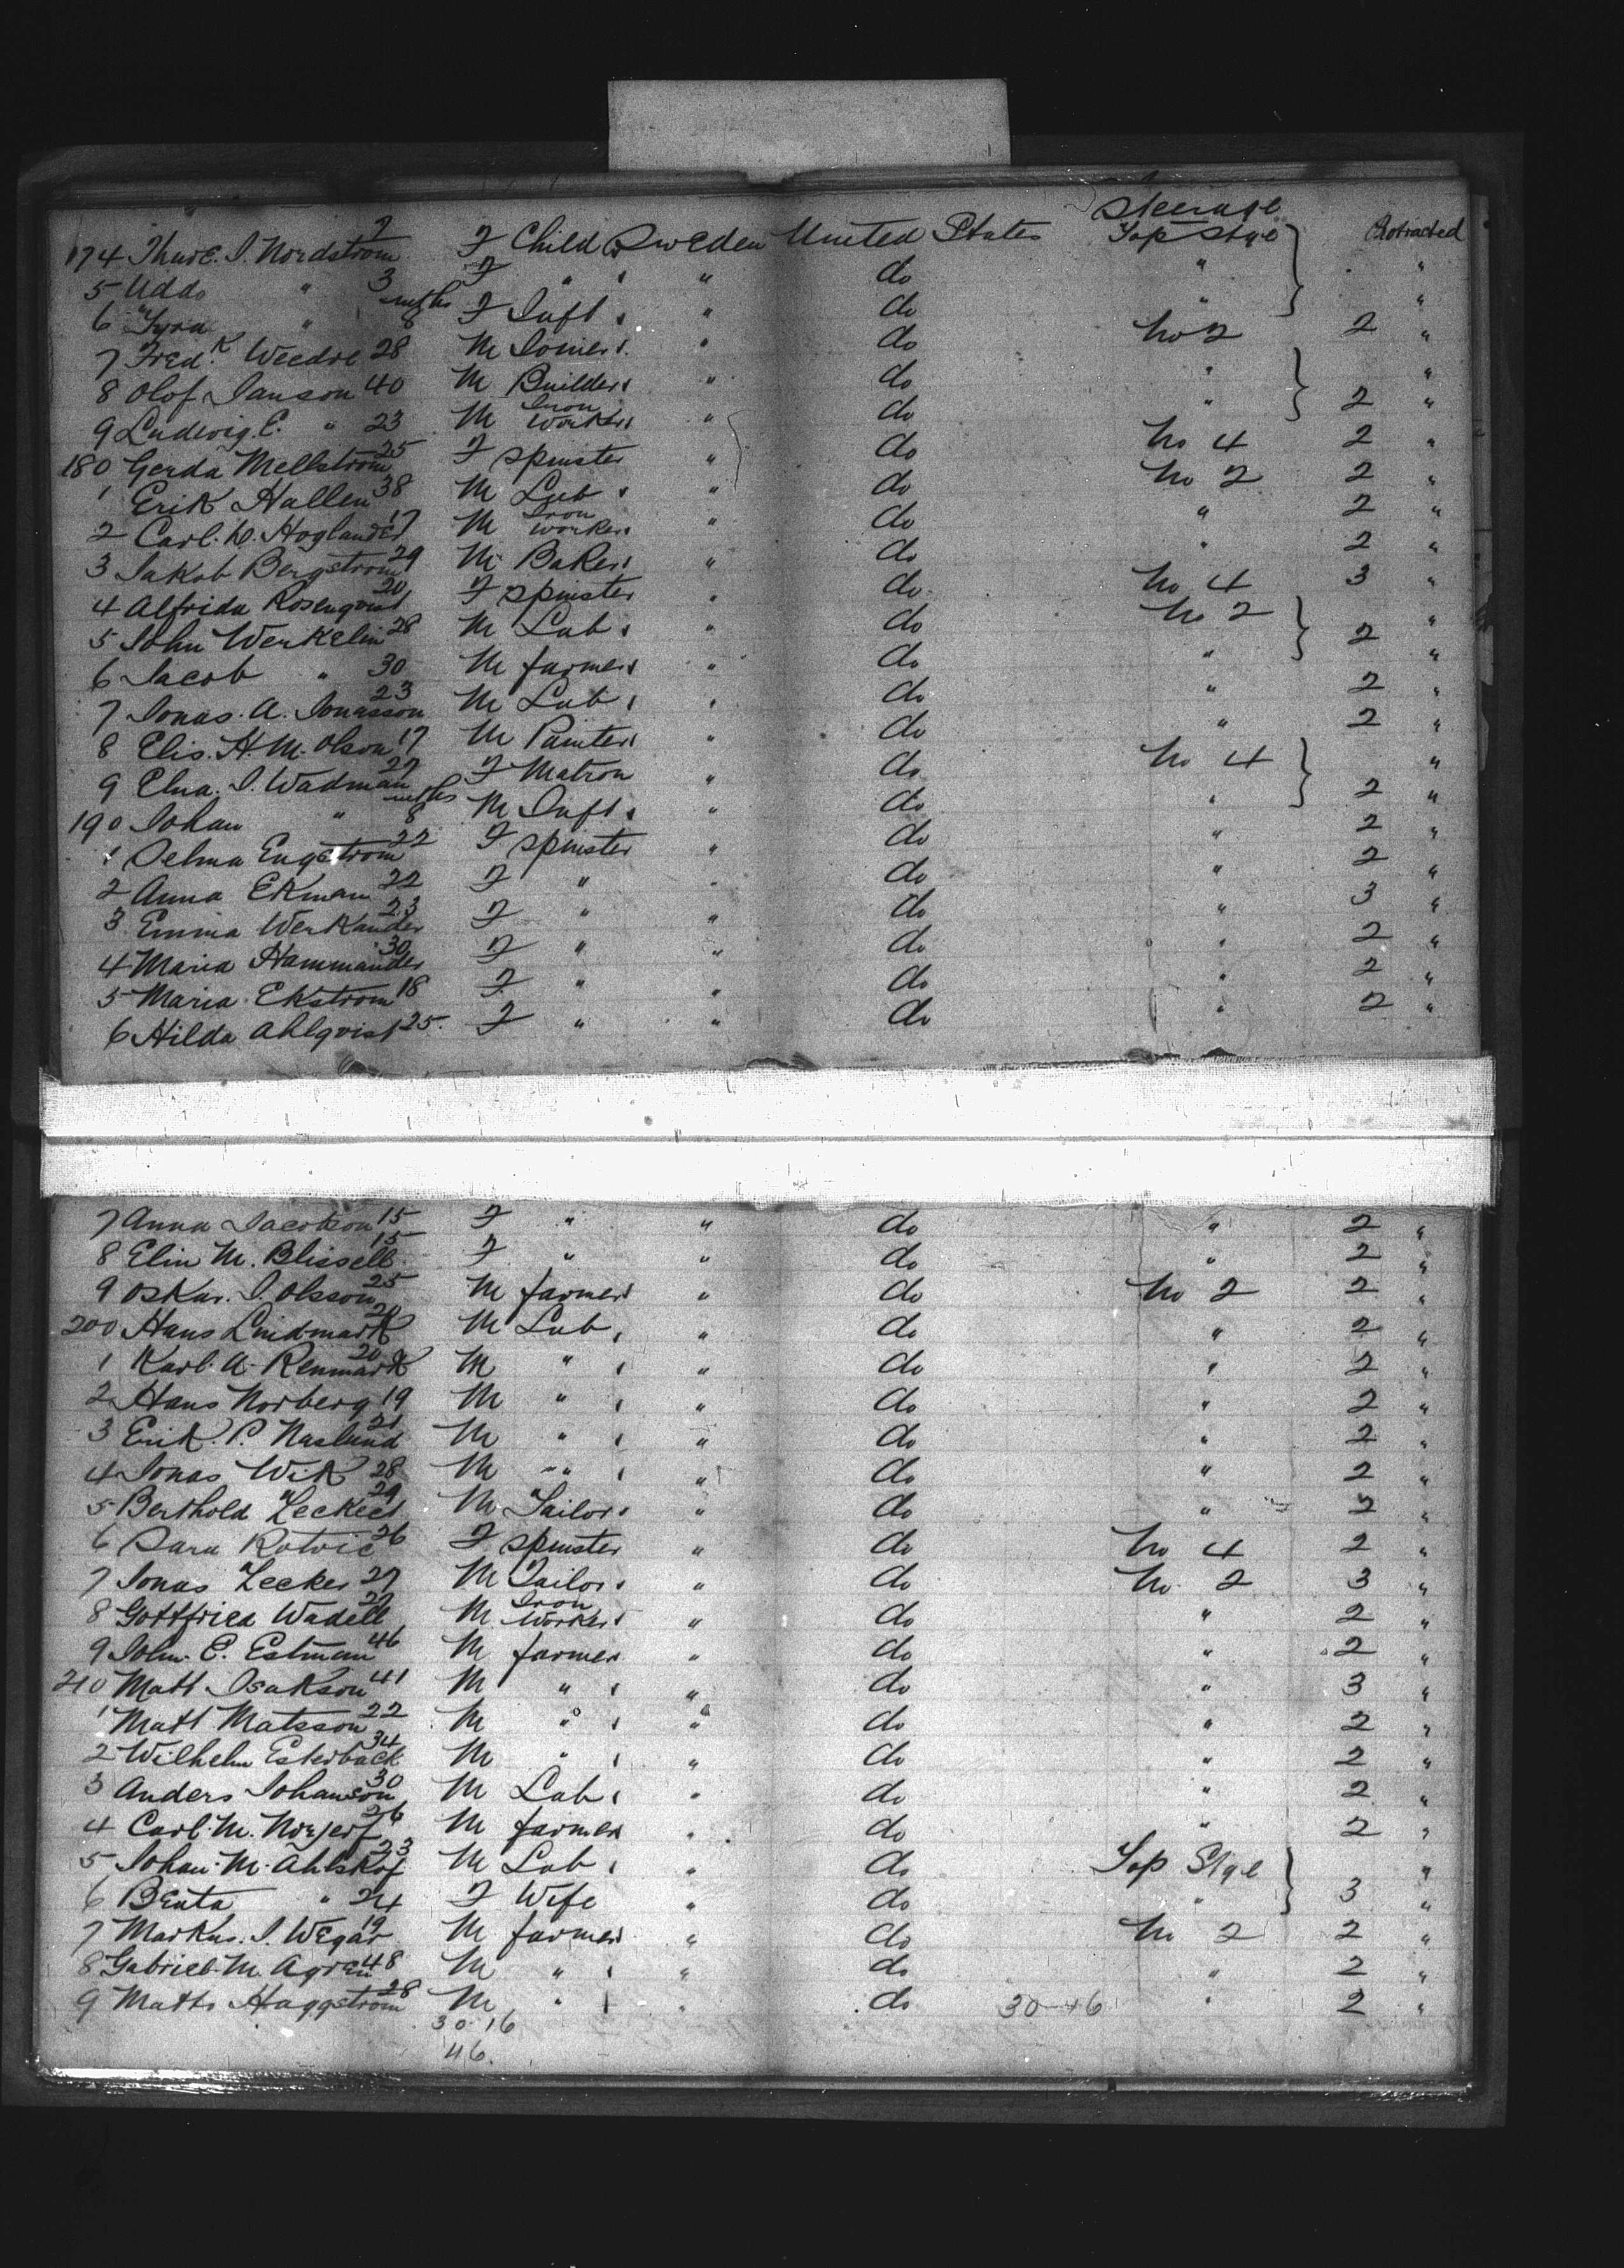 Steerage
174 Thure. I. Nordstrom 7 F Child Sweden United States Top Stge Protracted
5 Uddo " 3 F " " " do " "
6 Tyra " mths 8 F Inft " do " "
7 Fredk Weedre 28 M Joiner " do No 2 2 "
8 Olof Janson 40 M Builder " do " "
9 Ludwig. E. " 23 M Iron Worker " do " 2 "
180 Gerda Mellstrom 25 F Spinster " do No 4 2 "
1 Erik Hallen 38 M Lab " do No 2 2 "
2 Carl. W. Hoglander 17 M Iron Worker " do " 2 "
3 Jakob Bergstrom 29 M Baker " do " 2 "
4 Alfrida Rosenqvist 20 F Spinster " do No 4 3 "
5 John Werkelin 28 M Lab " do No 2 "
6 Jacob " 30 M farmer " do " 2 "
7 Jonas. A. Jonasson 23 M Lab " do " 2 "
8 Elis. H. M. Olson 17 M Painter " do " 2 "
9 Elna. I. Wadman 27 F Matron " do No 4 "
190 Johan " mths 8 M Inft " do " 2 "
1 Selma Engstrom 22 F Spinster " do " 2 "
2 Anna Ekman 22 F " " do " 2 "
3 Emma Werkander 23 F " " do " 3 "
4 Maria Hammander 30 F " " do " 2 "
5 Maria Ekstrom 18 F " " do " 2 "
6 Hilda Ahlqvist 25. F " " do " 2 "
7 Anna Jacobson 15 F " " do " 2 "
8 Elin M. Blissell 15 F " " do " 2 "
9 Oskar. I. Olsson 25 M farmer " do No 2 2 "
200 Hans Lindmark 20 M Lab " do " 2 "
1 Karl. A. Renmark 20 M " " do " 2 "
2 Hans Norberg 19 M " " do " 2 "
3 Erik. P. Naslund 21 M " " do " 2 "
4 Jonas Wik 28 M " " do " 2 "
5 Berthold Zecker 29 M Tailor " do " 2 "
6 Sara Rotvic 26 F Spinster " do No 4 2 "
7 Jonas Zecker 27 M Tailor " do No 2 3 "
8 Gottfried Wadell 22 M Iron Worker " do " 2 "
9 John. E. Estman 46 M farmer " do " 2 "
210 Matt Isakson 41 M " " do " 3 "
1 Matt Matsson 22 M " " do " 2 "
2 Wilhelm Esterback 34 M " " do " 2 "
3 Anders Johanson 30 M Lab " do " 2 "
4 Carl. M. 26 M farmer " do " 2 "
5 Johan. M. Ahlskof 23 M Lab " do Top Stge "
6 Beata " 24 F Wife " do " 3 "
7 Markus. I. Wegar 19 M farmer " do No 2 2 "
8 Gabriel. M. Agren 48 M " " do " 2 "
9 Matts Haggstrom 28 M " " do 30-46 " 2 "
30 16
46.